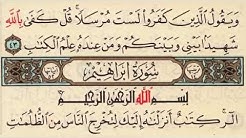 وَيَقُولُ ٱلَّذِينَ كَفَرُوا۟ لَسْتَ مُرْسَلًا ۚ قُلْ كَفَىٰ بِٱللَّهِ
شَهِيدًۢا بَيْنِى وَبَيْنَكُمْ وَمَنْ عِندَهُۥ عِلْمُ ٱلْكِتَٰبِ ٤٣
سُورَةُ إِبْرَاهِيمَ
بِسْمِ ٱللَّهِ ٱلرَّحْمَٰنِ ٱلرَّحِيمِ
الٓر ۚ كِتَٰبٌ أَنزَلْنَٰهُ إِلَيْكَ لِتُخْرِجَ ٱلنَّاسَ مِنَ ٱلظُّلُمَٰتِ